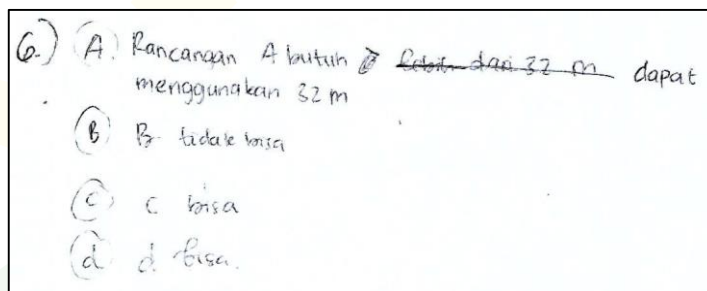 6.) A. Rancangan A butuh lebih dari 32 m dapat
menggunakan 32 m
B B tidak bisa
C C bisa
d d. bisa.